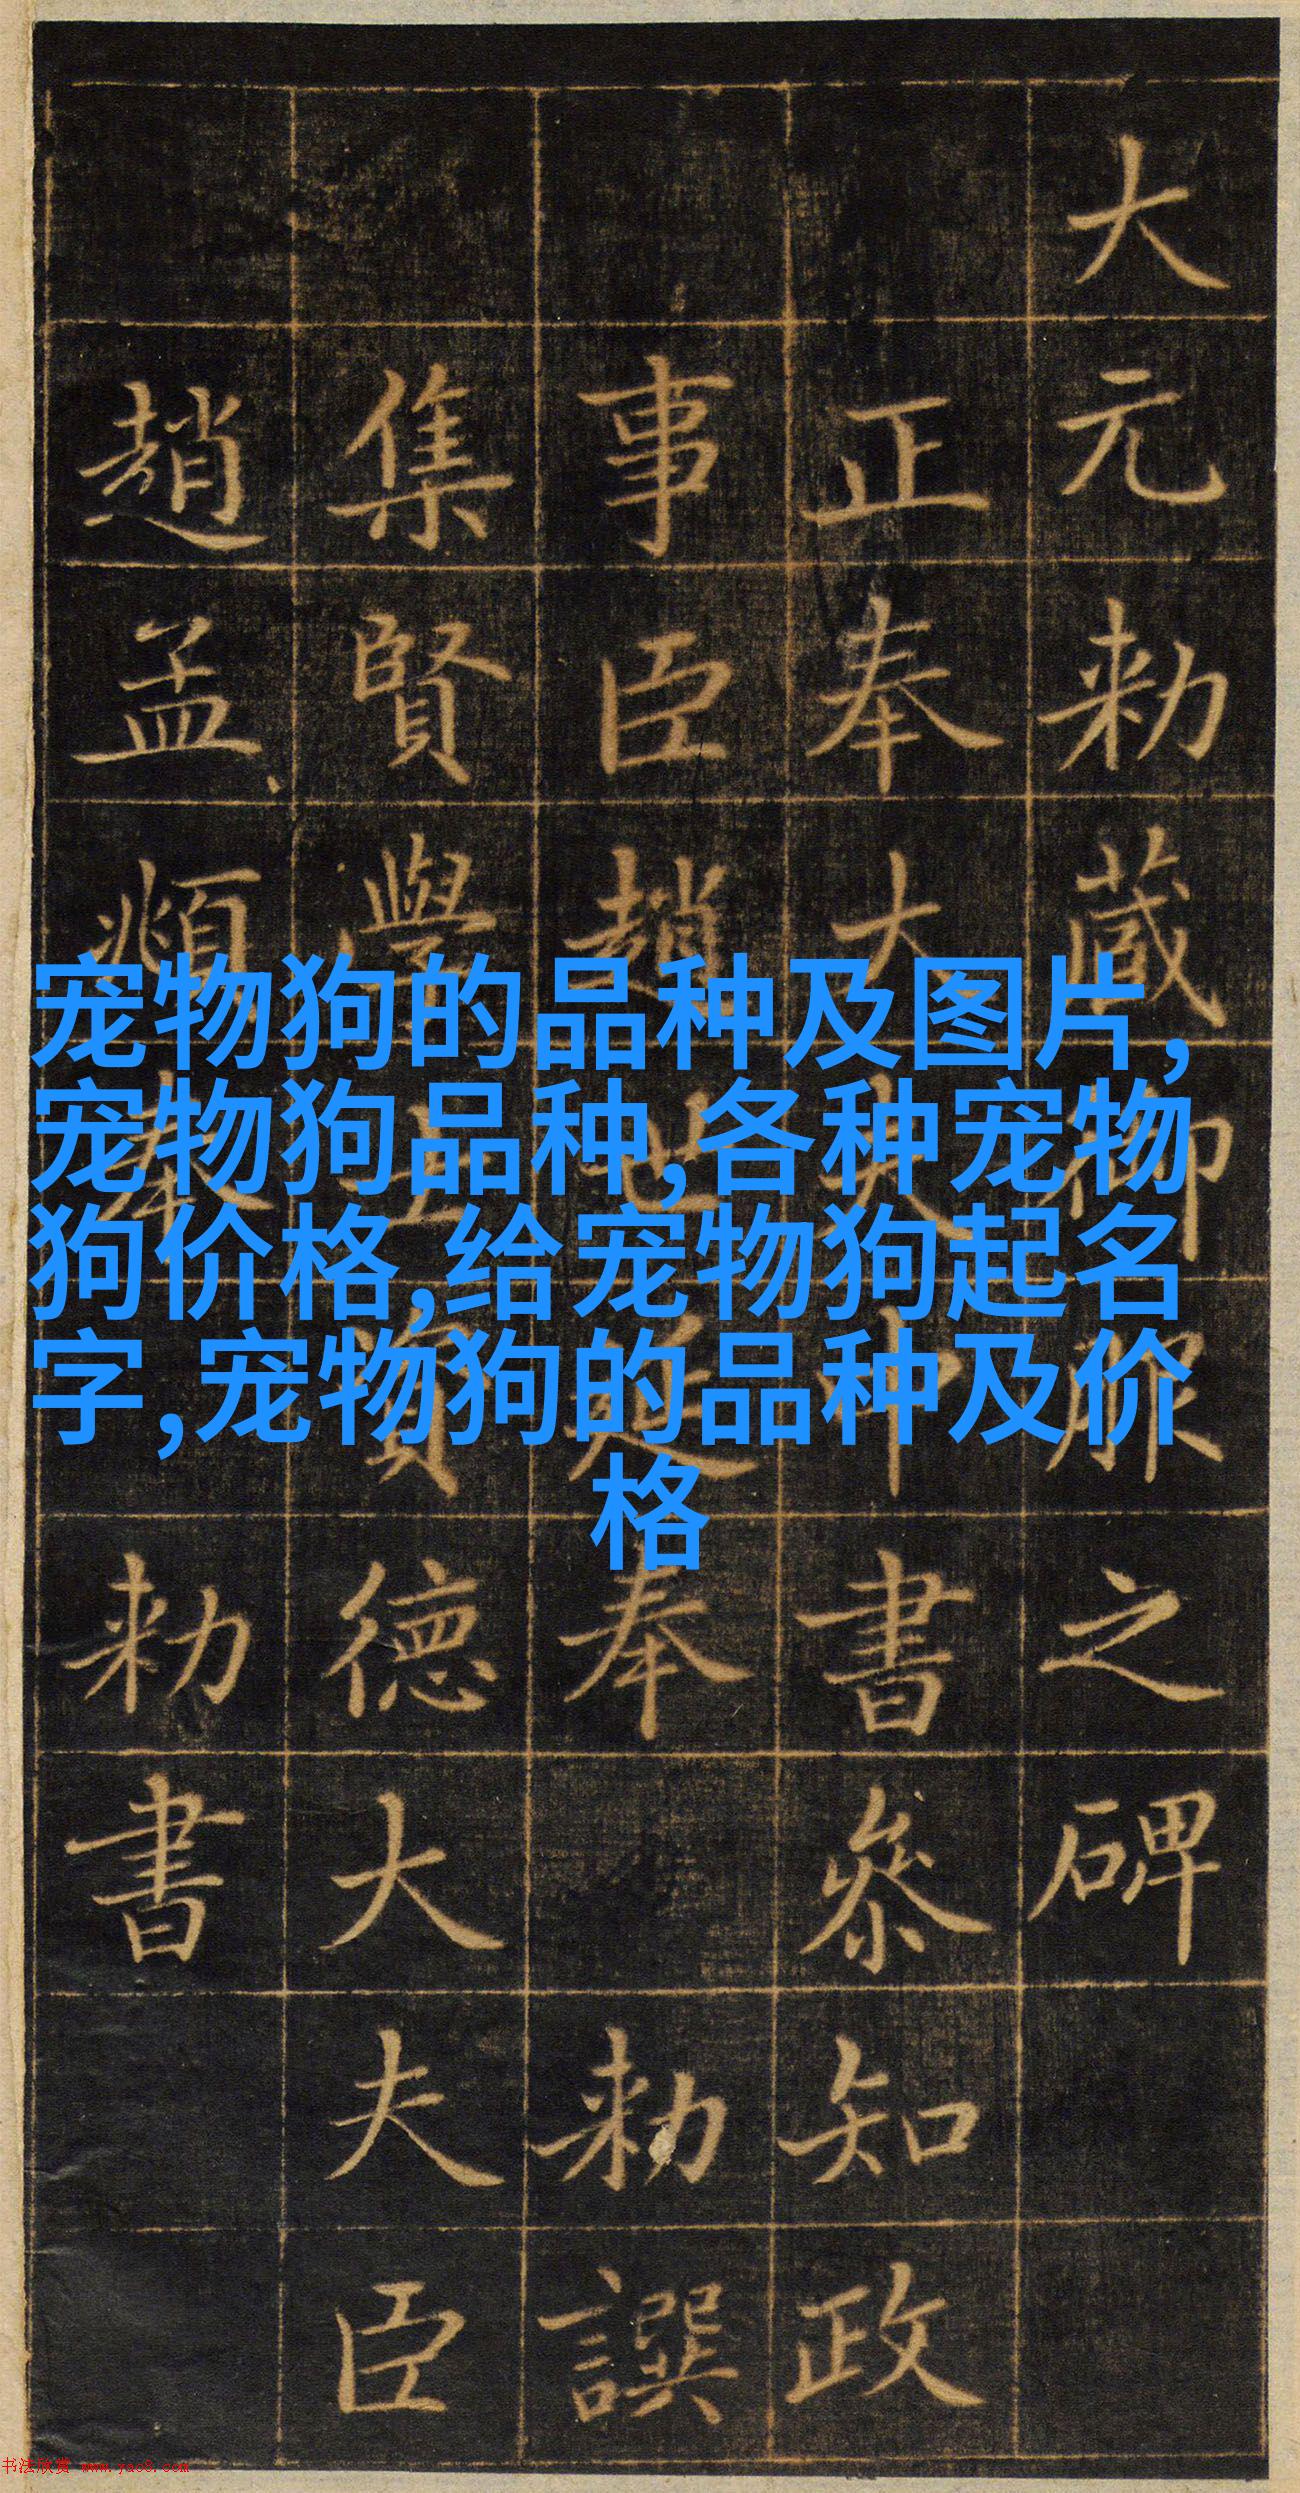 大元勑藏御服之碑
正奉大夫中書叅知政
事臣趙世延奉
勑譔
集賢學士資德大夫臣
趙孟頫奉
勑書
宠物狗的品种及图片,
宠物狗品种,各种宠物
狗价格,给宠物狗起名
字,宠物狗的品种及价
格
书法欣赏 www.yac8.com